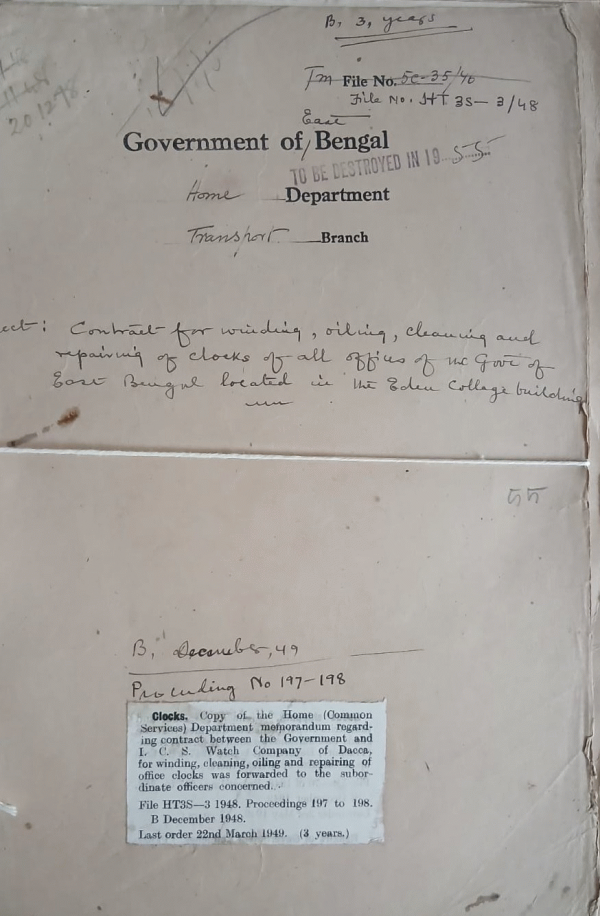 B, 3, years
File No. 5C-35/46
File No. HT 3S-3/48
East
Government of Bengal
TO BE DESTROYED IN 19 55
Home Department
Transport Branch
ect: Contract for winding, oiling, cleaning and
repairing of clocks of all offices of the Govt of
East Bengal located in the Eden College building
B, December, 49
Proceeding No 197-198
Clocks. Copy of the Home (Common
Services) Department memorandum regard-
ing contract between the Government and
I. C. S. Watch Company of Dacca,
for winding, cleaning, oiling and repairing of
office clocks was forwarded to the subor-
dinate officers concerned.
File HT3S—3 1948. Proceedings 197 to 198.
B December 1948.
Last order 22nd March 1949. (3 years.)